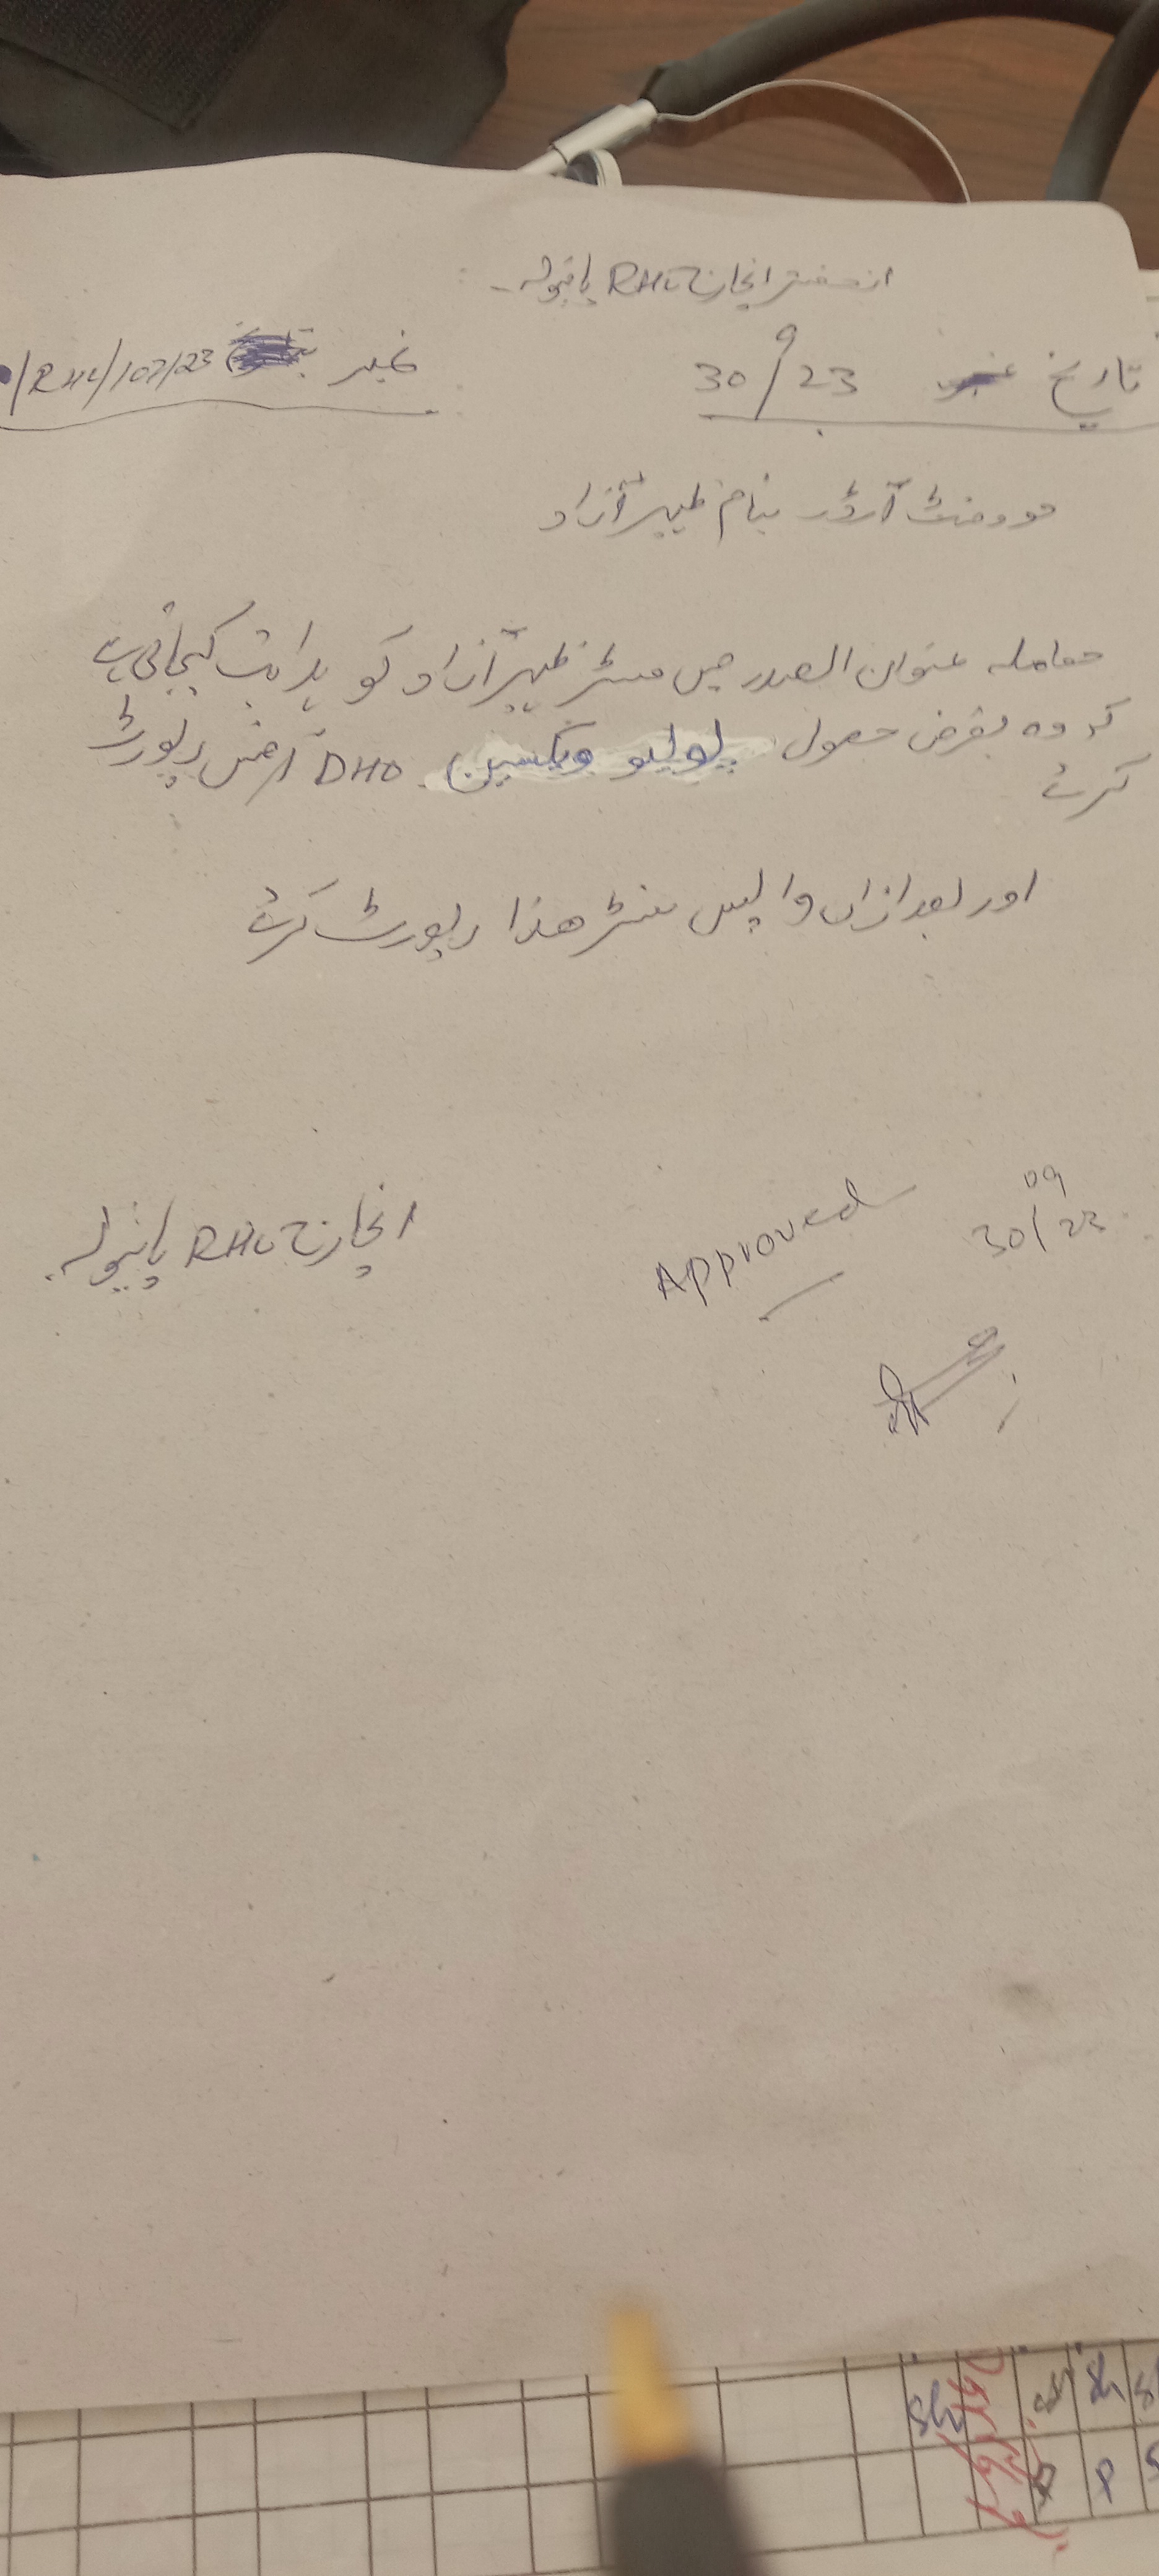 از دفتر انچارج RHC پانیولہ
تاریخ 30/9/23
نمبر /RHC/107/23
موومنٹ آرڈر بنام ظہیر آزاد
معاملہ عنوان الصدر میں مسٹر ظہیر آزاد کو ہدایت کیجاتی ہے
کہ وہ بغرض حصول پولیو ویکسین DHO آفس رپورٹ
کرے
اور بعد ازاں واپس سنٹر ھذا رپورٹ کرے
Approved
30/09/23
انچارج RHC پانیولہ